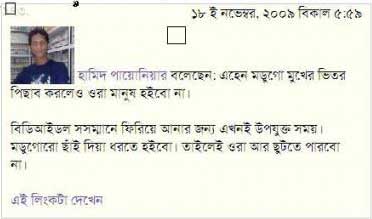 ১৮ ই নভেম্বর, ২০০৯ বিকাল ৫:৫৯
হামিদ পায়োনিয়ার বলেছেন: এহেন মডুগো মুখের ভিতর
পিছাব করলেও ওরা মানুষ হইবো না।
বিডিআইডল সসম্মানে ফিরিয়ে আনার জন্য এখনই উপযুক্ত সময়।
মডুগোরো ছাঁই দিয়া ধরতে হইবো। তাইলেই ওরা আর ছুটতে পারবো
না।
এই লিংকটা দেখেন